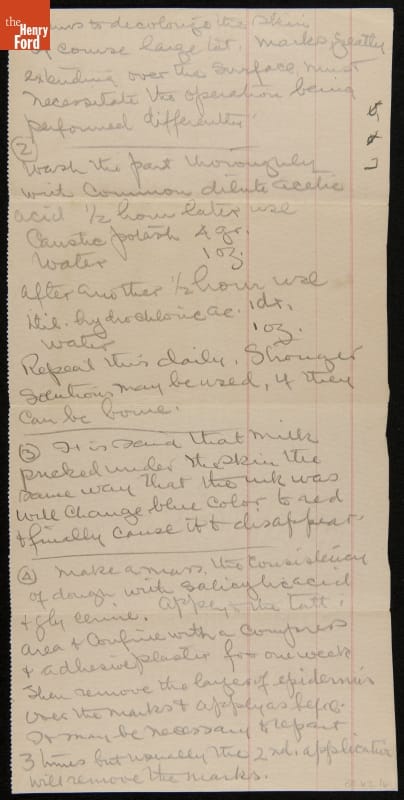 the
Henry
Ford
to decolonize the skin
of course large tat. marks greatly
extending over the surface must
necessitate the operation being
performed differently.
2
Wash the part thoroughly
with common dilute acetic
acid ½ hour later use
Caustic potash 4 gr.
Water 1 oz.
after another ½ hour use
dil. hydrochloric ac. 1 dr.
Water 1 oz.
Repeat this daily. Stronger
solutions may be used, if they
can be borne.
3 It is said that milk
pricked under the skin the
same way that the ink was
will change blue color to red
& finally cause it to disappear.
4 Make a mass, the consistency
of dough with salicylic acid
& glycerine. Apply to the tatt.
area & confine with a compress
& adhesive plaster for one week
Then remove the layer of epidermis
over the marks & apply as before.
It may be necessary to repeat
3 times but usually the 2nd. application
will remove the marks.